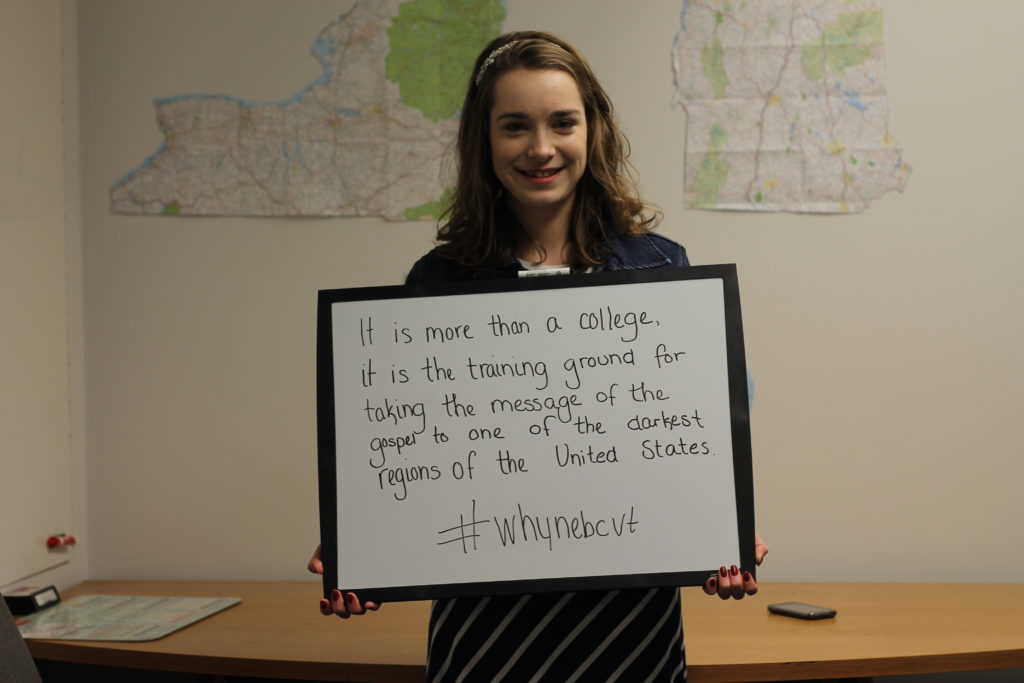 It is more than a college,
it is the training ground for
taking the message of the
gospel to one of the darkest
regions of the United States.
#whynebcvt